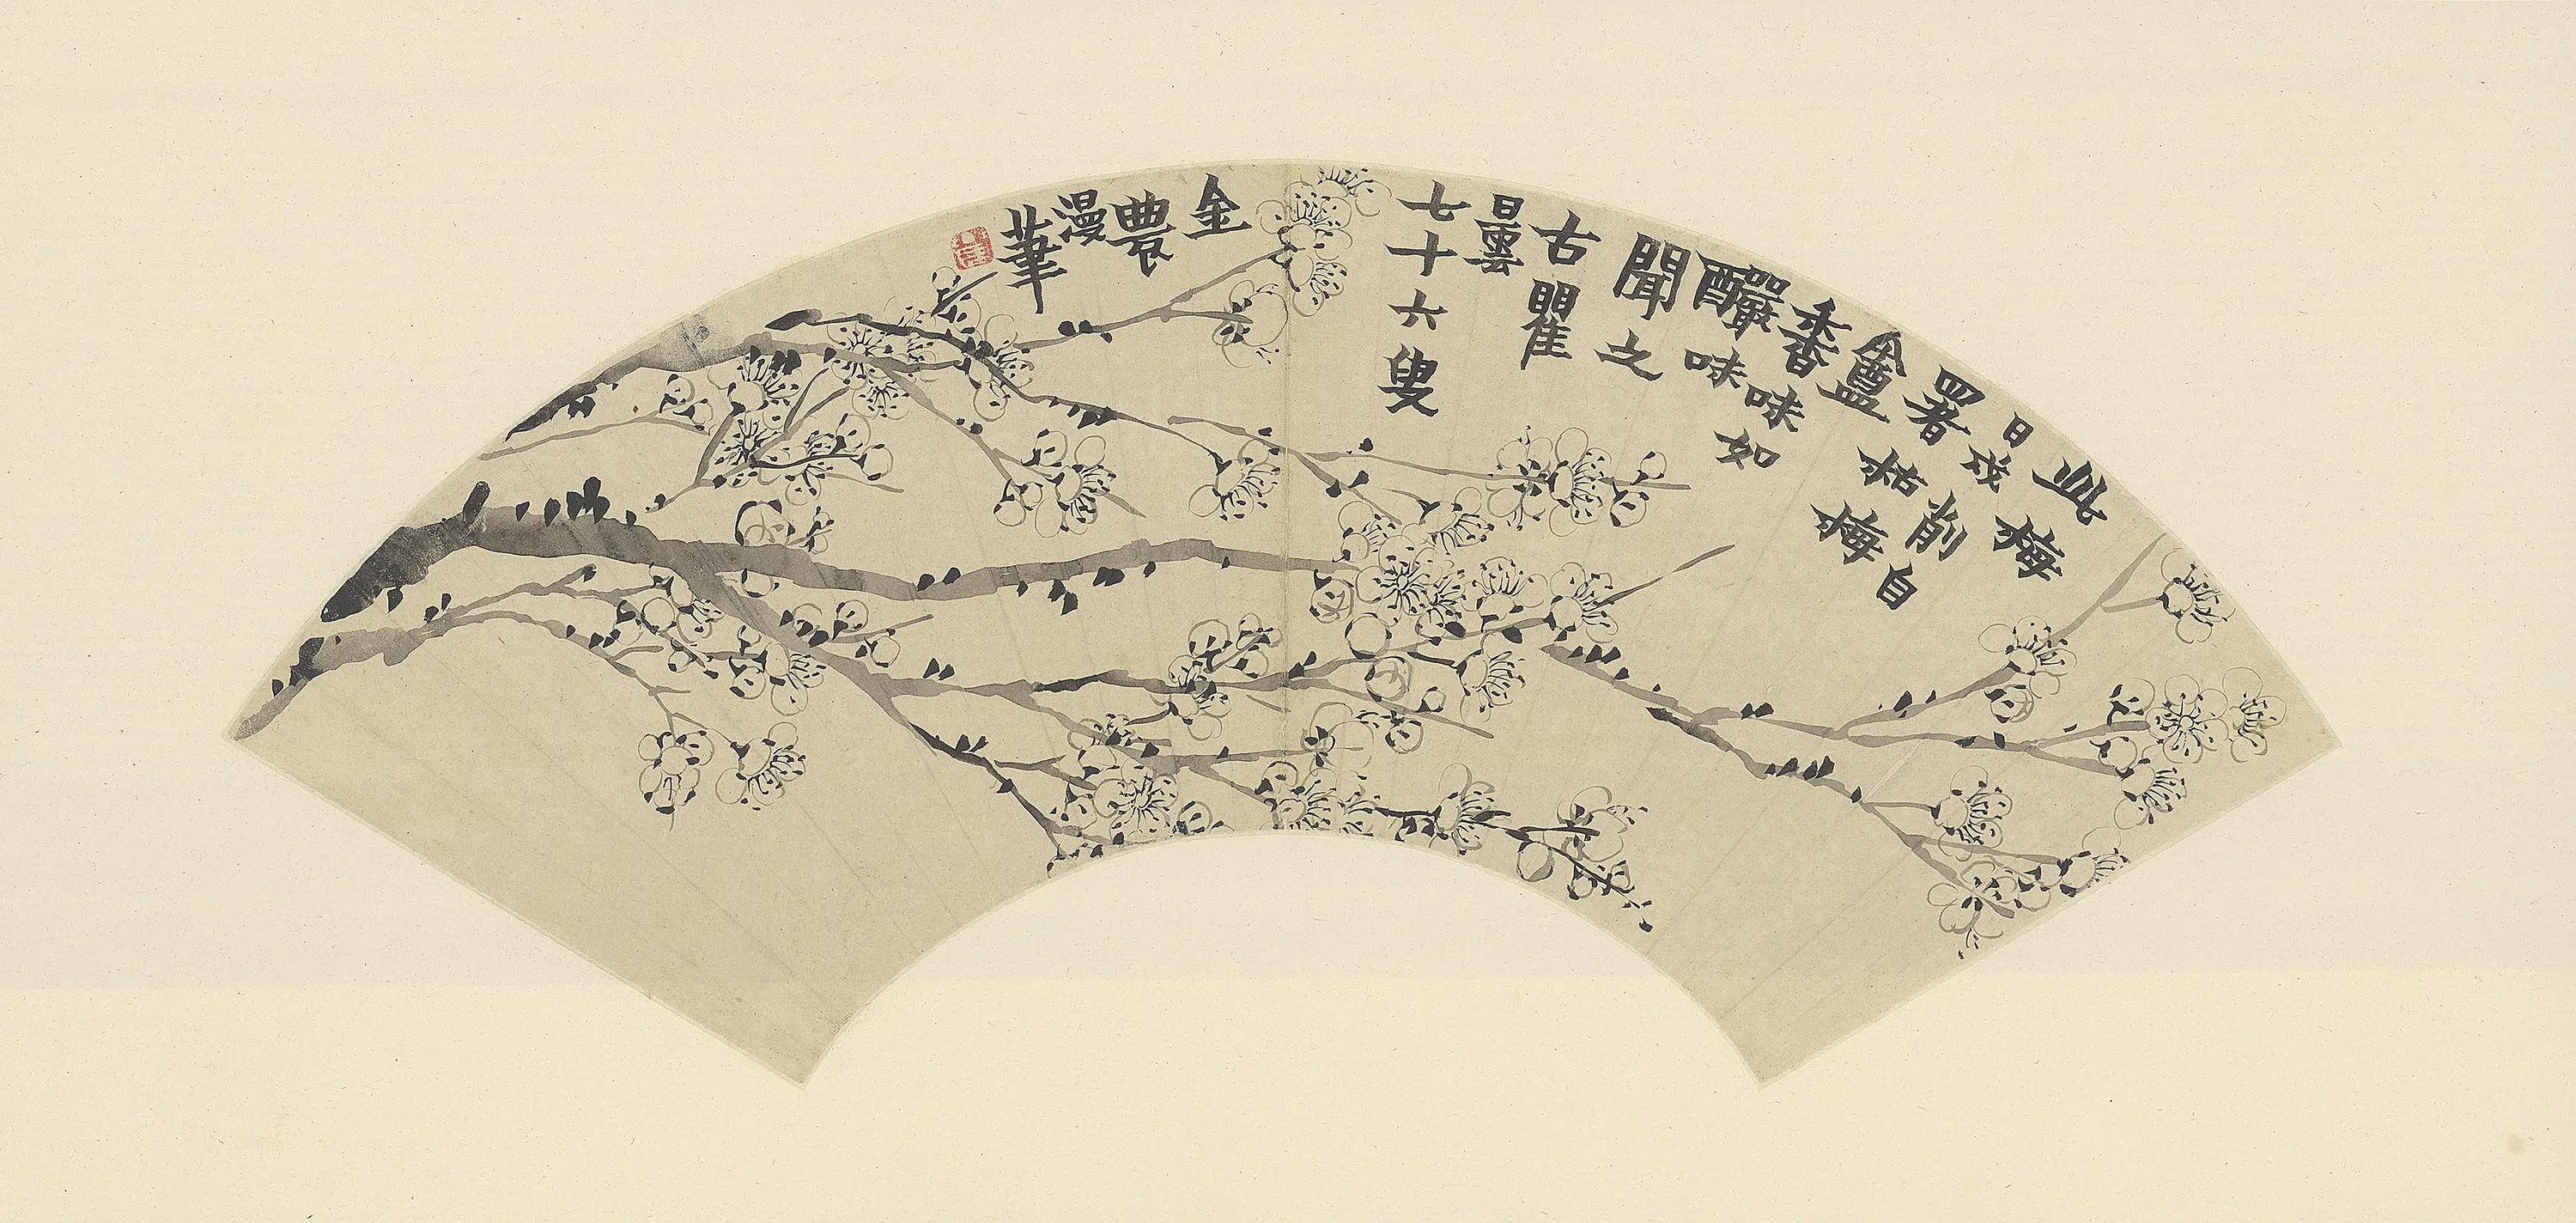 此梅
日
署削自
枯梅
香味
釅味如
聞之
古瞿
曇
七十六叟
金
農
漫
筆